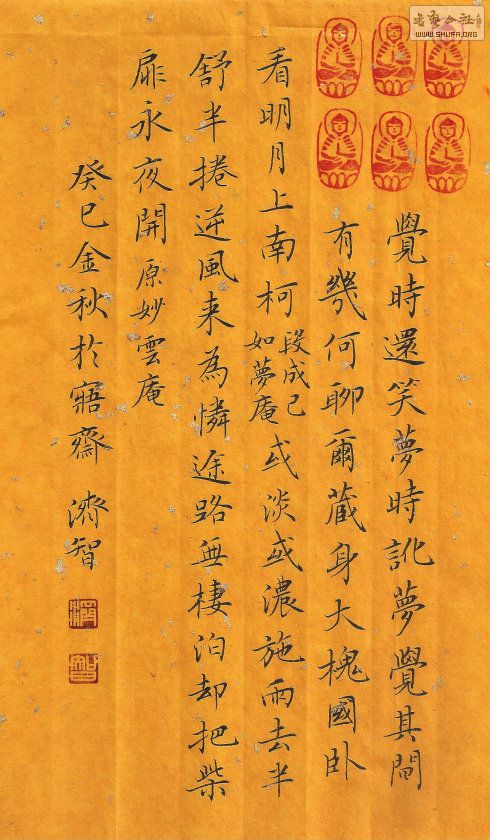 覺時還笑夢時訛夢覺其間
有幾何聊爾藏身大槐國卧
看明月上南柯 段成己
如夢庵 或淡或濃施雨去半
舒半捲逆風来為憐途路無棲泊却把柴
扉永夜開 原妙雲庵
癸巳金秋於寤齋 濟智
WWW.SHUFA.ORG